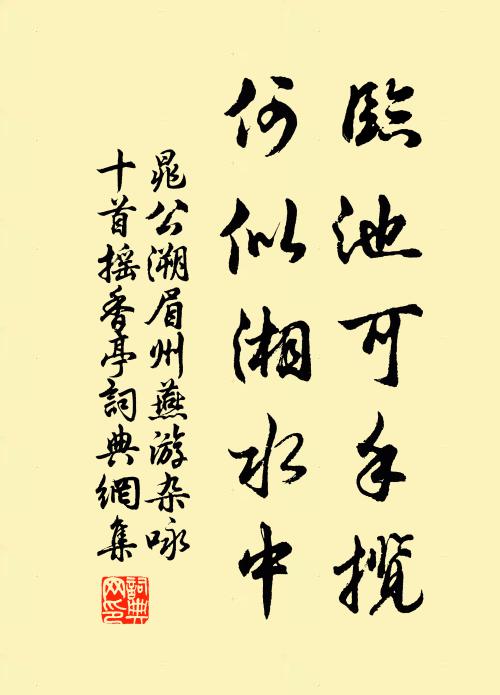 臨池可手攬
何似湘水中
晁公溯眉州燕游杂咏
十首摇香亭詞典網集
詞典
网印